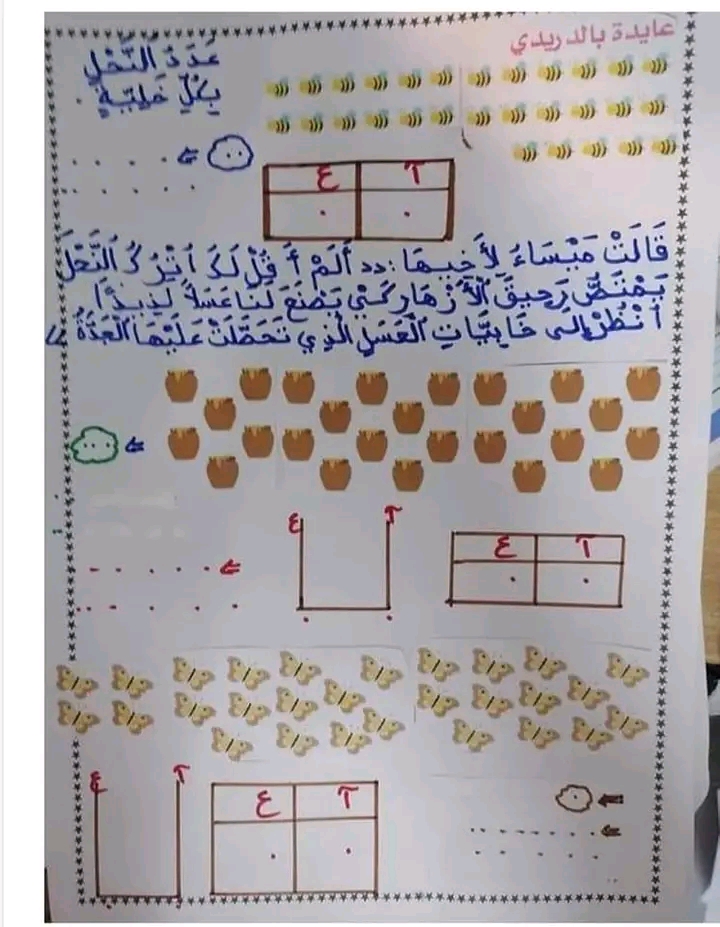 عايدة بالدريدي
عَدَدُ النَّحْلِ
بِكُلِّ خَلِيَّةٍ .
ع آ
قَالَتْ مَيْسَاءُ لأَخِيهَا : " أَلَمْ أَقُلْ لَكَ اُتْرُكْ النَّحْلَ
يَمْتَصُّ رَحِيقَ الأَزْهَارِ كَيْ يَصْنَعَ لَنَا عَسَلاً لَذِيذًا
اُنْظُرْ إِلَى خَابِيَاتِ العَسَلِ الَّذِي تَحَصَّلَتْ عَلَيْهَا الجَدَّةُ "
ع آ
ع آ
ع آ
ع آ